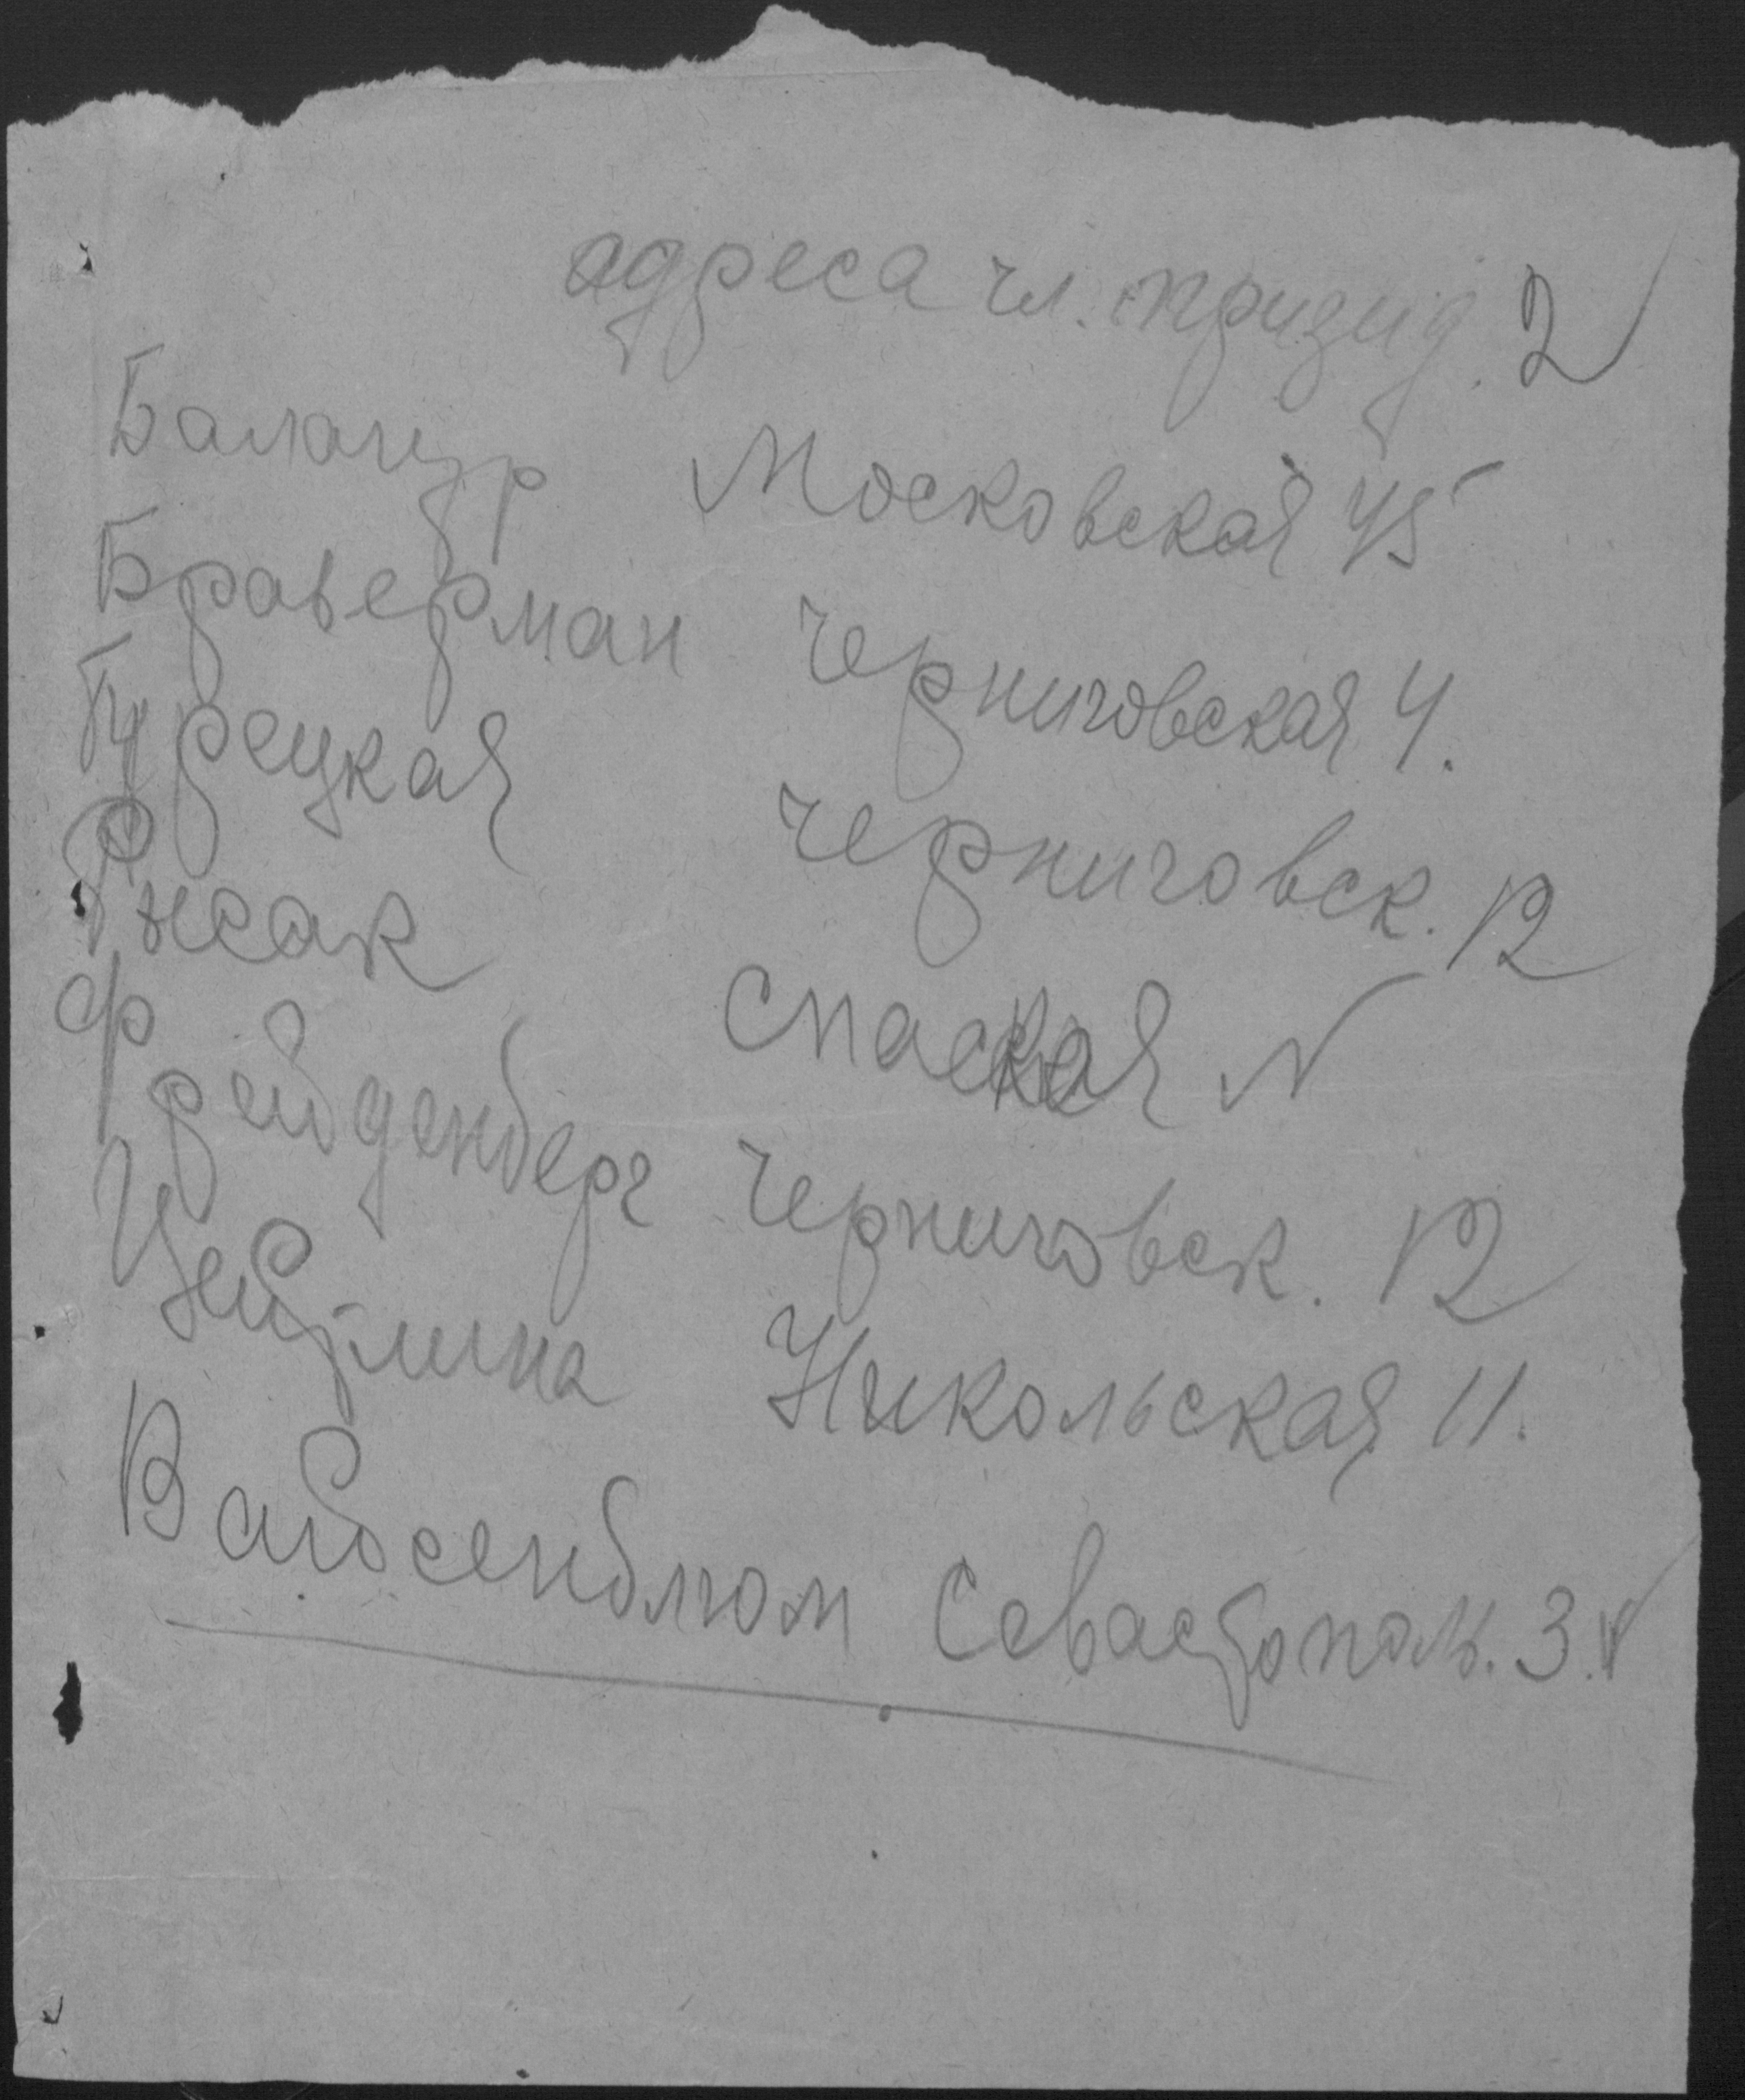 адреса чл. призид. 2
Балацур Московская 45
Браверман Черниговская 4.
Турецкая Черниговск. 12
Рысак Спаская N
Фрейденберг Черниговск. 12
Цейтлина Никольская 11.
Вайсенблюм Севастополь. 3.